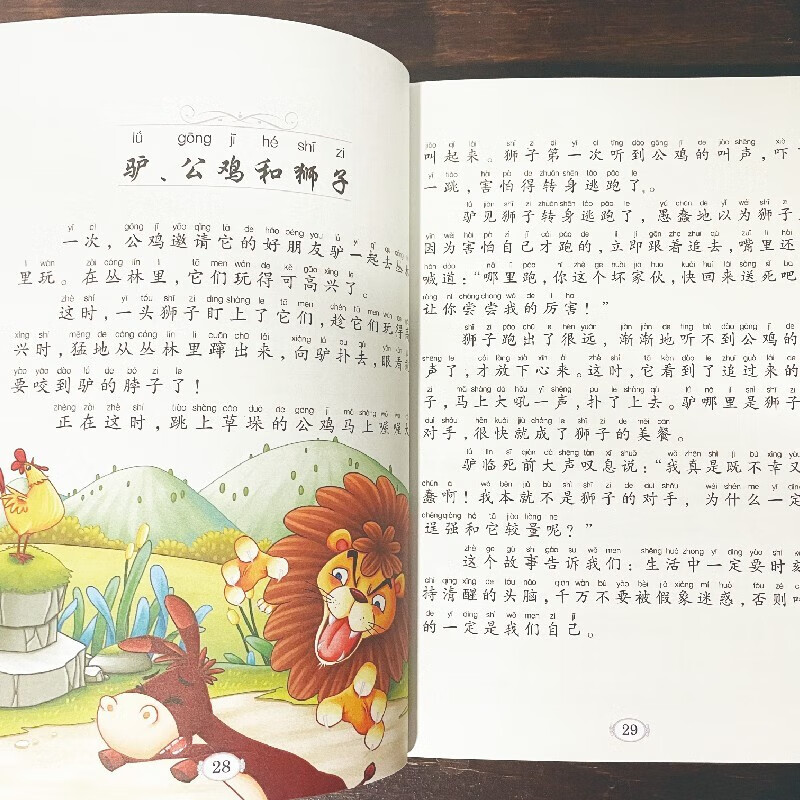 lǘ gōng jī hé shī zi
驴、公鸡和狮子
yí cì gōng jī yāo qǐng tā de hǎo péng you lǘ yì qǐ qù cóng
一次，公鸡邀请它的好朋友驴一起去丛林
lǐ wán zài cóng lín lǐ tā men wán de kě gāo xìng le
里玩。在丛林里，它们玩得可高兴了。
zhè shí yì tóu shī zi dīng shàng le tā men chèn tā men wán de gāo
这时，一头狮子盯上了它们，趁它们玩得高
xìng shí měng de cóng cóng lín lǐ cuān chū lái xiàng lǘ pū qù yǎn kàn
兴时，猛地从丛林里蹿出来，向驴扑去，眼看就
yào yǎo dào lǘ de bó zi le
要咬到驴的脖子了！
zhèng zài zhè shí tiào shàng cǎo duò de gōng jī mǎ shàng wō wō
正在这时，跳上草垛的公鸡马上喔喔大
28
jiào qǐ lái shī zi dì yī cì tīng dào gōng jī de jiào shēng xià
叫起来。狮子第一次听到公鸡的叫声，吓了
yí tiào hài pà de zhuǎn shēn táo pǎo le
一跳，害怕得转身逃跑了。
lǘ jiàn shī zi zhuǎn shēn táo pǎo le yú chǔn de yǐ wéi shī zi
驴见狮子转身逃跑了，愚蠢地以为狮子
yīn wèi hài pà zì jǐ cái pǎo de lì jí gēn zhe zhuī qù zuǐ lǐ hái
因为害怕自己才跑的，立即跟着追去，嘴里还
hǎn dào nǎ lǐ pǎo nǐ zhè ge huài jiā huo kuài huí lái sòng sǐ ba
喊道：“哪里跑，你这个坏家伙，快回来送死吧
ràng nǐ cháng chang wǒ de lì hai
让你尝尝我的厉害！”
shī zi pǎo chū le hěn yuǎn jiàn jiàn de tīng bú dào gōng jī de
狮子跑出了很远，渐渐地听不到公鸡的
shēng le cái fàng xià xīn lái zhè shí tā kàn dào le zhuī guò lái de
声了，才放下心来。这时，它看到了追过来的
zi mǎ shàng dà hǒu yì shēng pū le shàng qù lǘ nǎ lǐ shì shī zi
子，马上大吼一声，扑了上去。驴哪里是狮子
duì shǒu hěn kuài jiù chéng le shī zi de měi cān
对手，很快就成了狮子的美餐。
lǘ lín sǐ qián dà shēng tàn xī shuō wǒ zhēn shì jì bú xìng yòu
驴临死前大声叹息说：“我真是既不幸又
chǔn a wǒ běn jiù bú shì shī zi de duì shǒu wèi shén me yí dìng
蠢啊！我本就不是狮子的对手，为什么一定
chěng qiáng hé tā jiào liàng ne
逞强和它较量呢？”
zhè ge gù shi gào su wǒ men shēng huó zhōng yí dìng yào shí kè
这个故事告诉我们：生活中一定要时刻
chí qīng xǐng de tóu nǎo qiān wàn bú yào bèi jiǎ xiàng mí huò fǒu zé
持清醒的头脑，千万不要被假象迷惑，否则
de yí dìng shì wǒ men zì jǐ
的一定是我们自己。
29